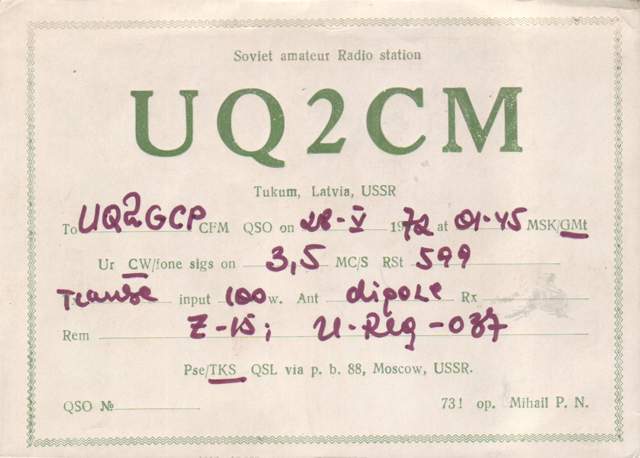 Soviet amateur Radio station
UQ2CM
Tukum, Latvia, USSR
To UQ2GCP CFM QSO on 28-V 1972 at 01-45 MSK/GMt
Ur CW/fone sigs on 3,5 MC/S RSt 599
input 100 w. Ant dipole Rx
Rem Z-15; U-Reg-037
Pse/TKS QSL via p. b. 88, Moscow, USSR.
QSO № 73! op. Mihail P. N.